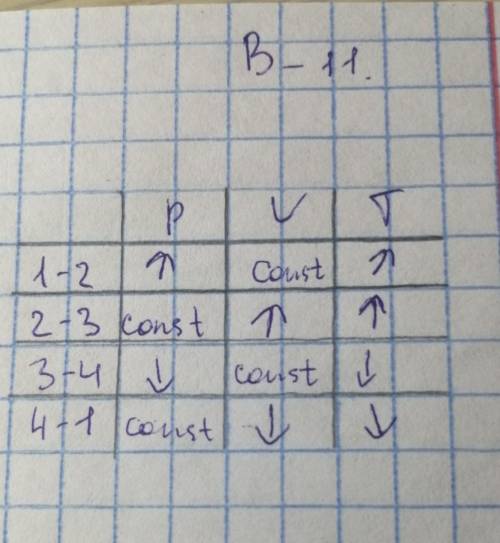 В - 11.
P V T
1-2 ↑ const ↑
2-3 const ↑ ↑
3-4 ↓ const ↓
4-1 const ↓ ↓